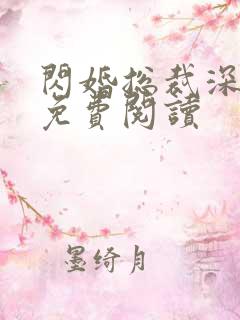 閃婚总裁深
免費閱讀
墨绮月